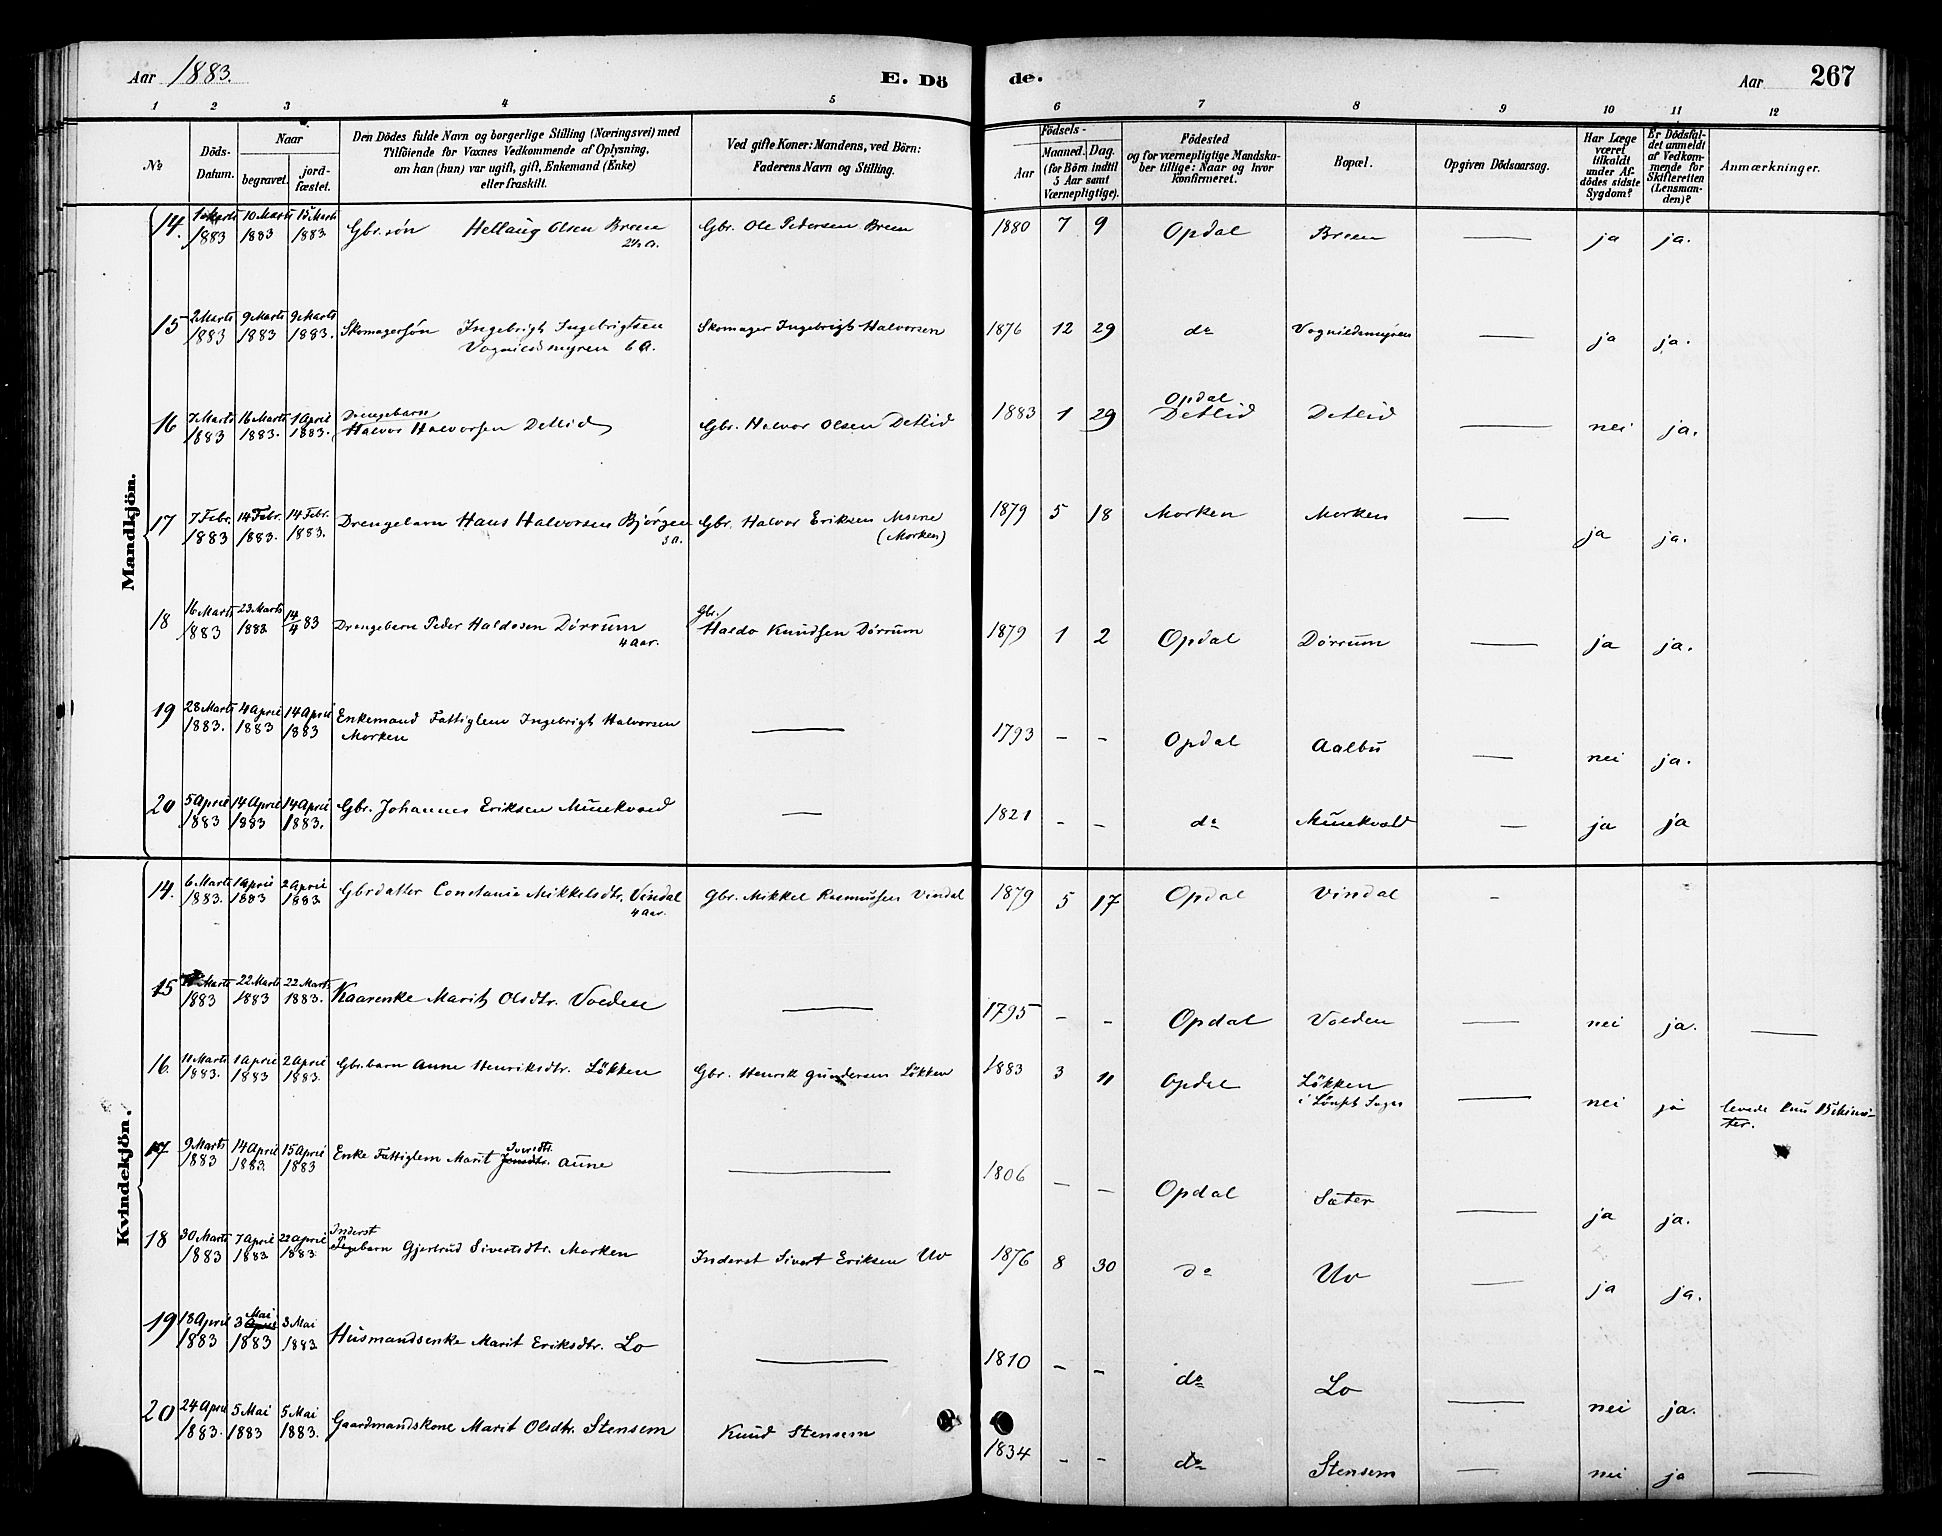 Aar 1883.
E. Dö
de.
Aar 267
1 2 3 4 5 6 7 8 9 10 11 12
No
Döds-Datum.
Naar
begravet.
jordfæstet.
Den Dödes fulde Navn og borgerlige Stilling (Næringsvei) med
Tilföiende for Voxnes Vedkommende af Oplysning,
om han (hun) var ugift, gift, Enkemand (Enke)
eller fraskilt.
Ved gifte Koner: Mandens, ved Börn:
Faderens Navn og Stilling.
Födsels-
Aar
Maaned.
Dag.
(for Börn indtil
5 Aar samt
Værnepligtige).
Födested
og for værnepligtige Mandska-
ber tillige: Naar og hvor
konfirmeret.
Bopæl.
Opgiven Dödsaarsag.
Har Læge
været
tilkaldt
under Af-
dödes sidste
Sygdom?
Er Dödsfal-
det anmeldt
af Vedkom-
mende for
Skifteretten
(Lensman-
den)?
Anmærkninger.
Mandkjön.
14. 1 Marts 1883 10 Marts 1883 15 Marts 1883 Gbr. søn Hellaug Olsen Breen 2½ a. Gbr. Ole Pedersen Breen 1880 7 9 Opdal Breen — ja ja.
15 2 Marts 1883 9 Marts 1883 9 Marts 1883. Skomagersøn Ingebrigt Ingebrigtsen Skomager Ingebrigt Halvorsen 1876 12 29 do Vognildsmyren — ja ja.
Vognildsmyren 6 A.
16 7 Marts 1883 16 Marts 1883. 1 April 1883. Drengebarn Halvor Halvorsen Detlid Gbr. Halvor Olsen Detlid 1883 1 29 Opdal Detlid Detlid — nei ja.
17 7 Febr. 1883 14 Febr. 1883. 14 Febr. 1883. Drengebarn Hans Halvorsen Bjørgen 3 a. Gbr. Halvor Eriksen (Morken) 1879 5 18 Morken Morken — ja ja.
18 16 Marts 1883 23 Marts 1883 14/4 83 Drengebarn Peder Haldosen Dørrum 4 Aar. Gbr. Haldo Knudsen Dørrum 1879 1 2 Opdal Dørrum — ja ja.
19 28 Marts 1883. 4 April 1883 14 April 1883 Enkemand Fattiglem Ingebrigt Halvorsen — 1793 - - Opdal Aalbu — nei ja.
Morken
20 5 April 1883 14 April 1883 14 April 1883. Gbr. Johannes Eriksen Munkvold — 1821 - - do Munkvold — ja ja
Kvindekjön.
14. 6 Marts 1883. 1 April 1883 2 April 1883 Gbrdatter Constanse Mikkelsdtr. Vindal 4 Aar. Gbr. Mikkel Rasmussen Vindal 1879 5 17 Opdal Vindal -
15 Marts 1883 22 Marts 1883 22 Marts 1883. Kaarenke Marit Olsdtr. Volden — 1795 - - Opdal Volden — nei ja. —
16. 11 Marts 1883. 1 April 1883 2 April 1883. Gbr. barn Anne Henriksdtr. Løkken Gbr. Henrik Gundersen Løkken 1883 3 11 Opdal Løkken — nei ja levede kun
i Lønset Sogn
17 9 Marts 1883 14 April 1883. 15 April 1883 Enke Fattiglem Marit Jonsdtr. Iversdtr. Aune — 1806 - - Opdal Sæter — ja ja.
18 30 Marts 1883 7 April 1883 22 April 1883 Inderst Pigebarn Gjertrud Sivertsdtr. Morken Inderst Sivert Eriksen Uv 1876 8 30 do Uv — ja ja.
19 18 April 1883 3 April Mai 1883 3 Mai 1883 Husmandsenke Marit Eriksdtr. Lo — 1810 - - do Lo — nei ja.
20 24 April 1883. 5 Mai 1883 5 Mai 1883. Gaardmandskone Marit Olsdtr. Stensem Knud Stensem 1834 - - do Stensem — nei ja —